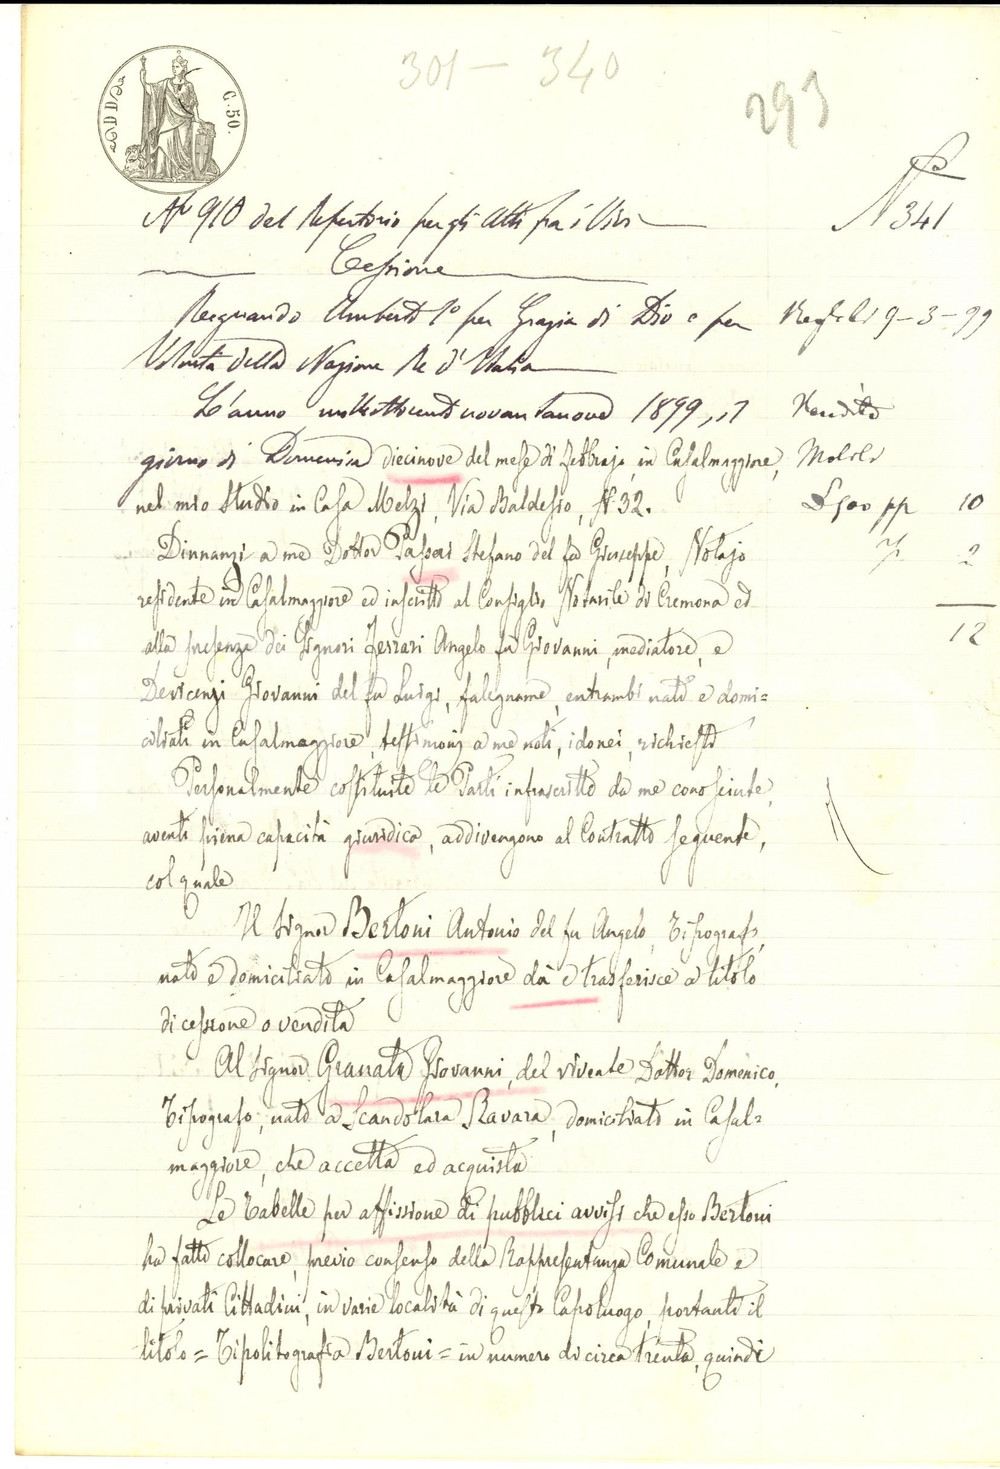 301 – 340
293
C. 50.
N° 910 del Repertorio per gli Atti fra i Vivi
N 341
Cessione
Regnando Umberto I° per Grazia di Dio e per
9-3-99
Volontà della Nazione Re d'Italia
L'anno milleottocentonovantanove 1899, il
Vendita
giorno di Domenica diecinove del mese di Febbrajo, in Casalmaggiore,
Mobili
nel mio Studio in Casa Melzi, Via Baldesio, N. 32.
10
Dinnanzi a me Dottor Passeri Stefano del fu Giuseppe, Notajo
2
residente in Casalmaggiore ed inscritto al Consiglio Notarile di Cremona ed
12
alla presenza dei Signori Ferrari Angelo fu Giovanni, mediatore, e
Devicenzi Giovanni del fu Luigi, falegname, entrambi nati e domi=
ciliati in Casalmaggiore, testimonj a me noti, idonei, richiesti
Personalmente costituite le Parti infrascritte da me conosciute,
aventi piena capacità giuridica, addivengono al Contratto seguente,
col quale
Il Signor Bertoni Antonio del fu Angelo, Tipografo,
nato e domiciliato in Casalmaggiore dà e trasferisce a titolo
di cessione o vendita
Al Signor Granata Giovanni, del vivente Dottor Domenico,
Tipografo, nato a Scandolara Ravara, domiciliato in Casal=
maggiore, che accetta ed acquista
Le Tabelle per affissione di pubblici avvisi che esso Bertoni
ha fatto collocare, previo consenso della Rappresentanza Comunale e
di privati Cittadini, in varie località di questo Capoluogo, portanti il
titolo = Tipolitografia Bertoni = in numero di circa trenta, quindi